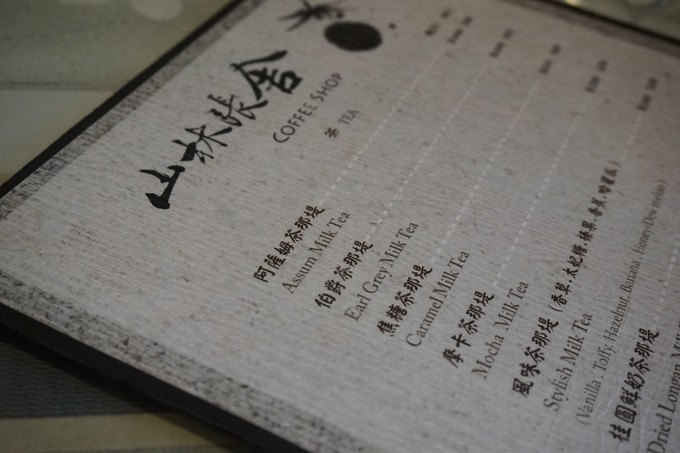 山林張舍
COFFEE SHOP
茶 TEA
阿薩姆茶那堤
Assum Milk Tea
伯爵茶那堤
Earl Grey Milk Tea
焦糖茶那堤
Caramel Milk Tea
摩卡茶那堤
Mocha Milk Tea
風味茶那堤 (香草,太妃糖,榛果,香蕉,哈蜜瓜)
Stylish Milk Tea
(Vanilla, Toffy, Hazelnut, Banana, HoneyDew melon)
桂圓鮮奶茶那堤
Dried Longan